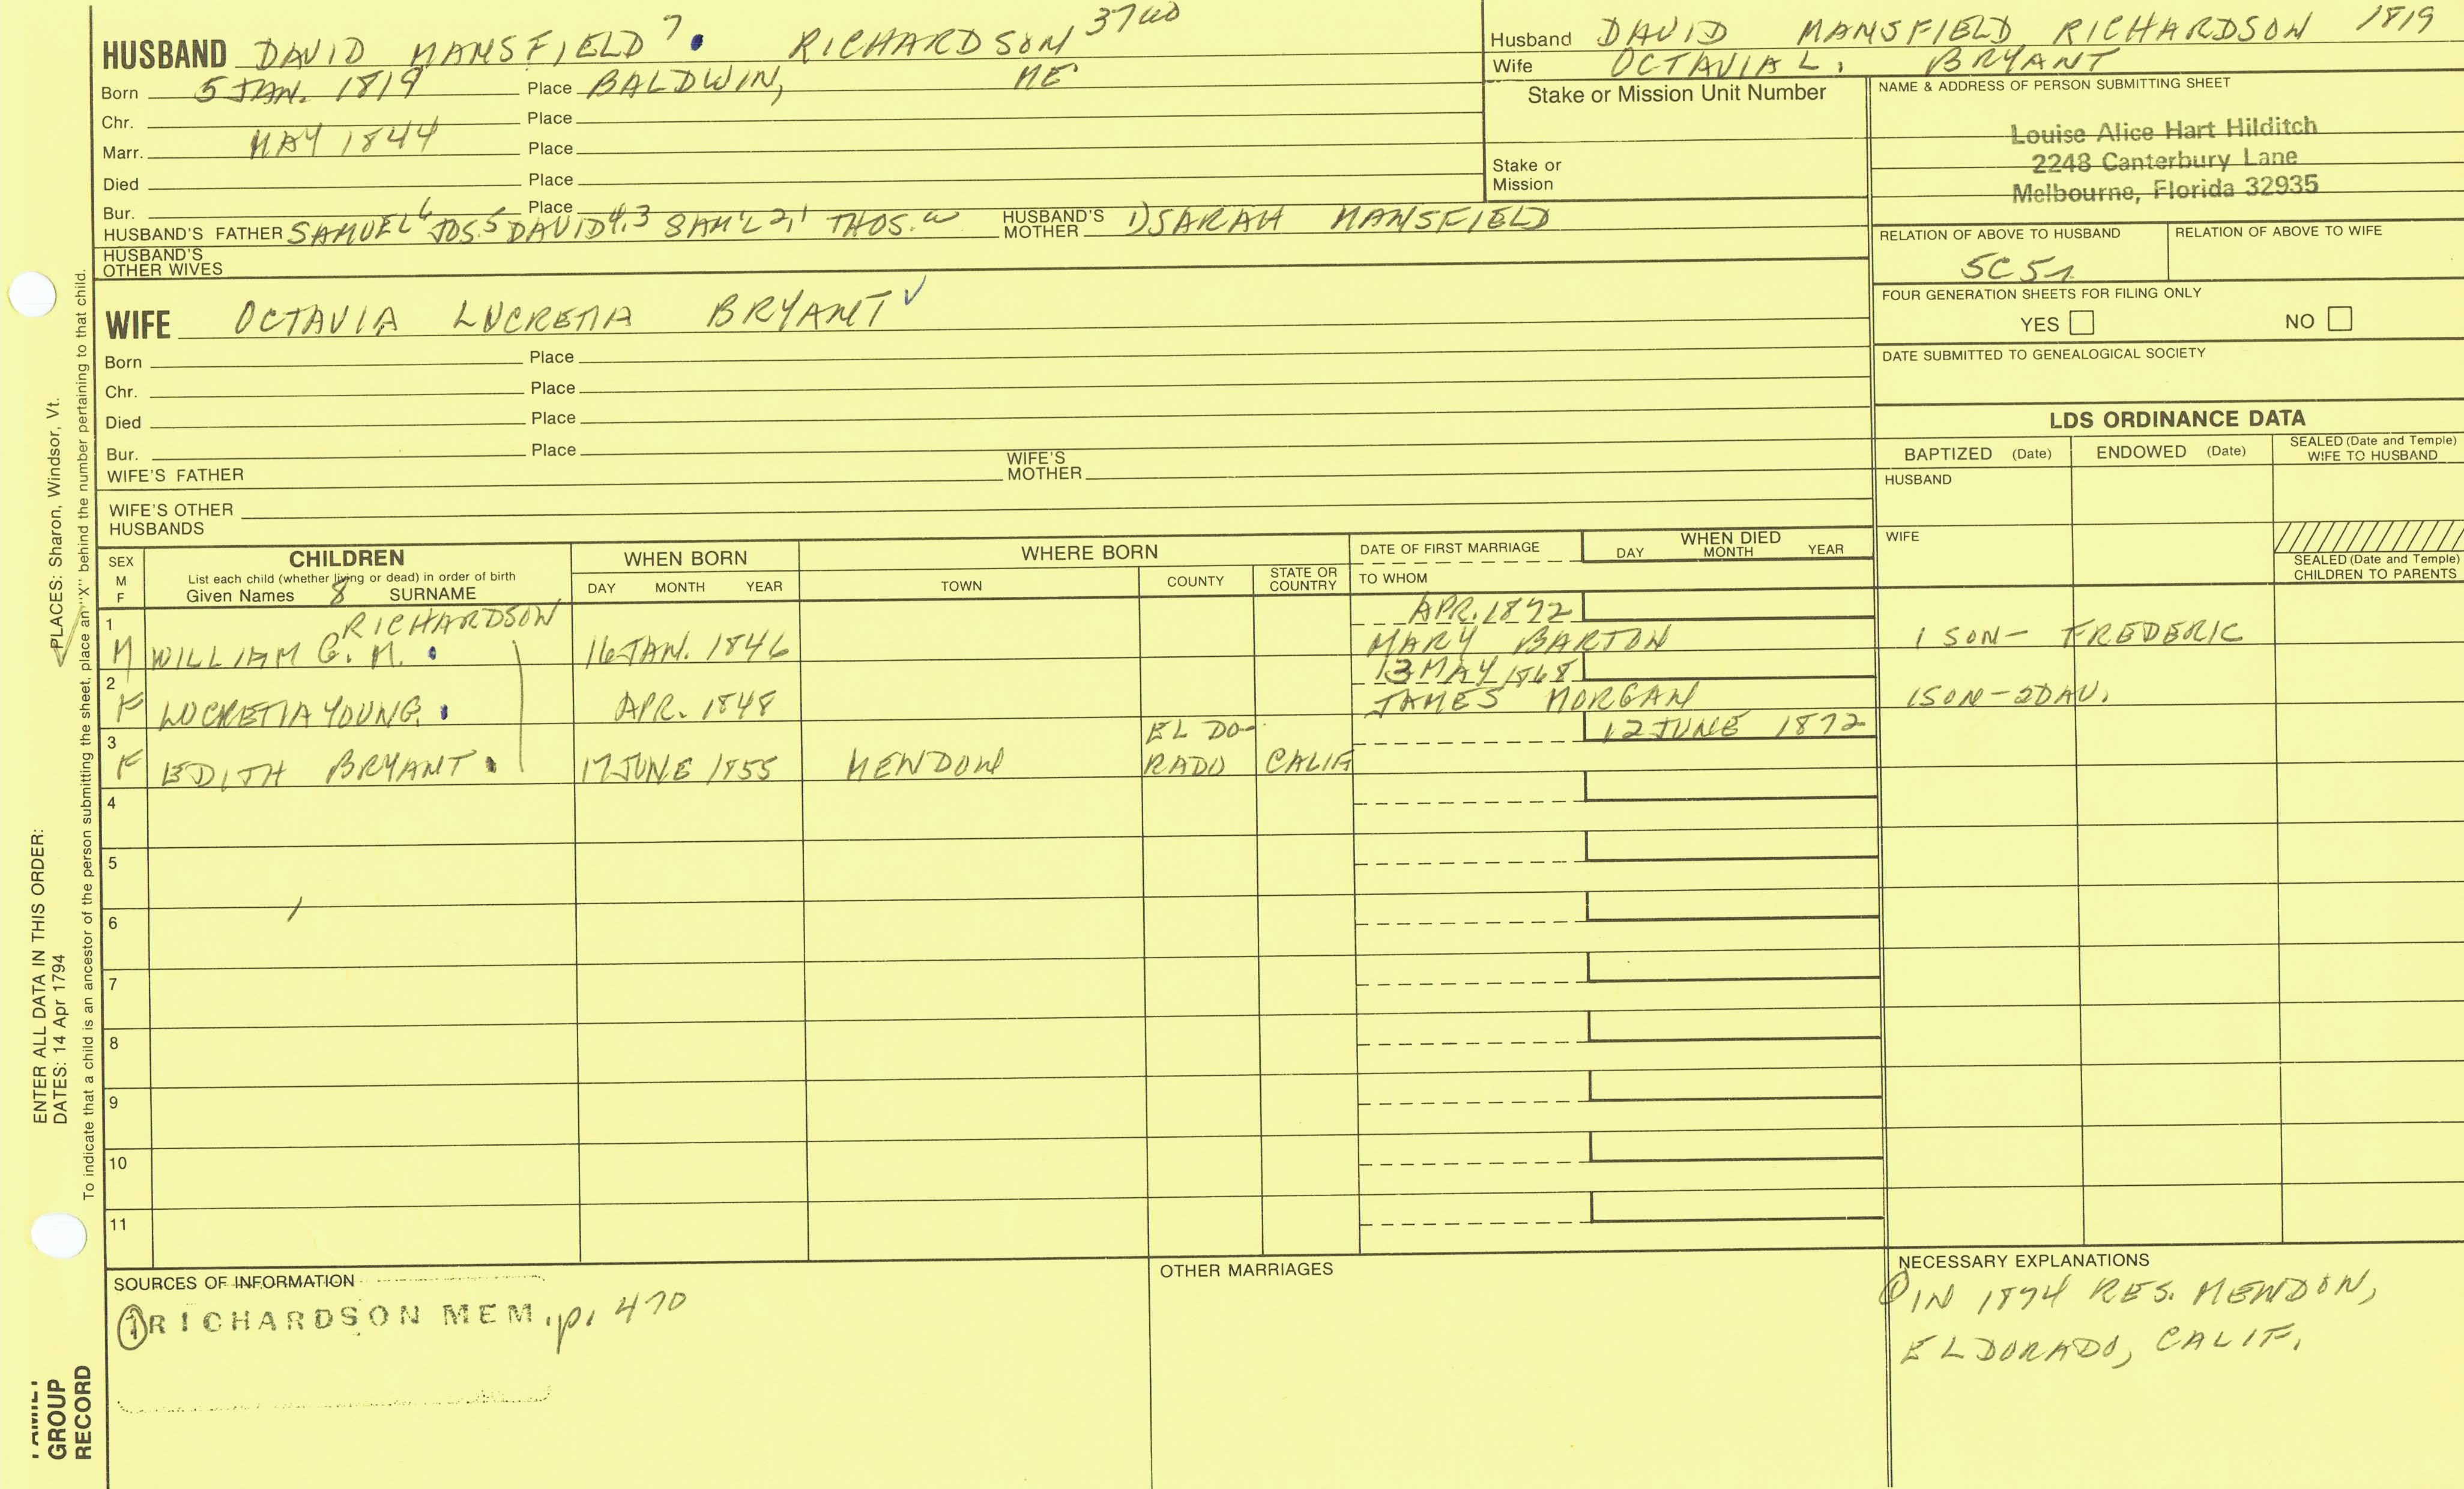 HUSBAND DAVID MANSFIELD 7. RICHARDSON 3740
Born 5 JAN. 1819 Place BALDWIN, ME
Chr. Place
Marr. MAY 1844 Place
Died Place
Bur. Place
HUSBAND'S FATHER SAMUEL 6 JOS. 5 DAVID 4,3 SAM'L 2,1 THOS. HUSBAND'S MOTHER 1) SARAH MANSFIELD
HUSBAND'S OTHER WIVES
WIFE OCTAVIA LUCRETIA BRYANT ✓
Born Place
Chr. Place
Died Place
Bur. Place
WIFE'S FATHER WIFE'S MOTHER
WIFE'S OTHER HUSBANDS
Husband DAVID MANSFIELD RICHARDSON 1819
Wife OCTAVIA L. BRYANT
Stake or Mission Unit Number
Stake or Mission
NAME & ADDRESS OF PERSON SUBMITTING SHEET
Louise Alice Hart Hilditch
2248 Canterbury Lane
Melbourne, Florida 32935
RELATION OF ABOVE TO HUSBAND RELATION OF ABOVE TO WIFE
5C 5
FOUR GENERATION SHEETS FOR FILING ONLY
YES NO
DATE SUBMITTED TO GENEALOGICAL SOCIETY
LDS ORDINANCE DATA
BAPTIZED (Date) ENDOWED (Date) SEALED (Date and Temple) WIFE TO HUSBAND
HUSBAND
WIFE
SEALED (Date and Temple) CHILDREN TO PARENTS
SEX M F
CHILDREN
List each child (whether living or dead) in order of birth
Given Names 8 SURNAME
WHEN BORN
DAY MONTH YEAR
WHERE BORN
TOWN COUNTY STATE OR COUNTRY
DATE OF FIRST MARRIAGE
TO WHOM
WHEN DIED
DAY MONTH YEAR
1 RICHARDSON APR. 1872
M WILLIAM G. M. 16 JAN. 1846 MARY BARTON 1 SON - FREDERIC
2 13 MAY 1868
F LUCRETIA YOUNG. APR. 1848 JAMES MORGAN 1 SON - 2 DAU.
3 EL DO- 12 JUNE 1872
F EDITH BRYANT. 17 JUNE 1855 MENDON RADO CALIF
4
5
6
7
8
9
10
11
SOURCES OF INFORMATION
① RICHARDSON MEM. p. 470
OTHER MARRIAGES
NECESSARY EXPLANATIONS
① IN 1874 RES. MENDON,
ELDORADO, CALIF.
ENTER ALL DATA IN THIS ORDER:
DATES: 14 Apr 1794
PLACES: Sharon, Windsor, Vt.
To indicate that a child is an ancestor of the person submitting the sheet, place an "X" behind the number pertaining to that child.
GROUP
RECORD